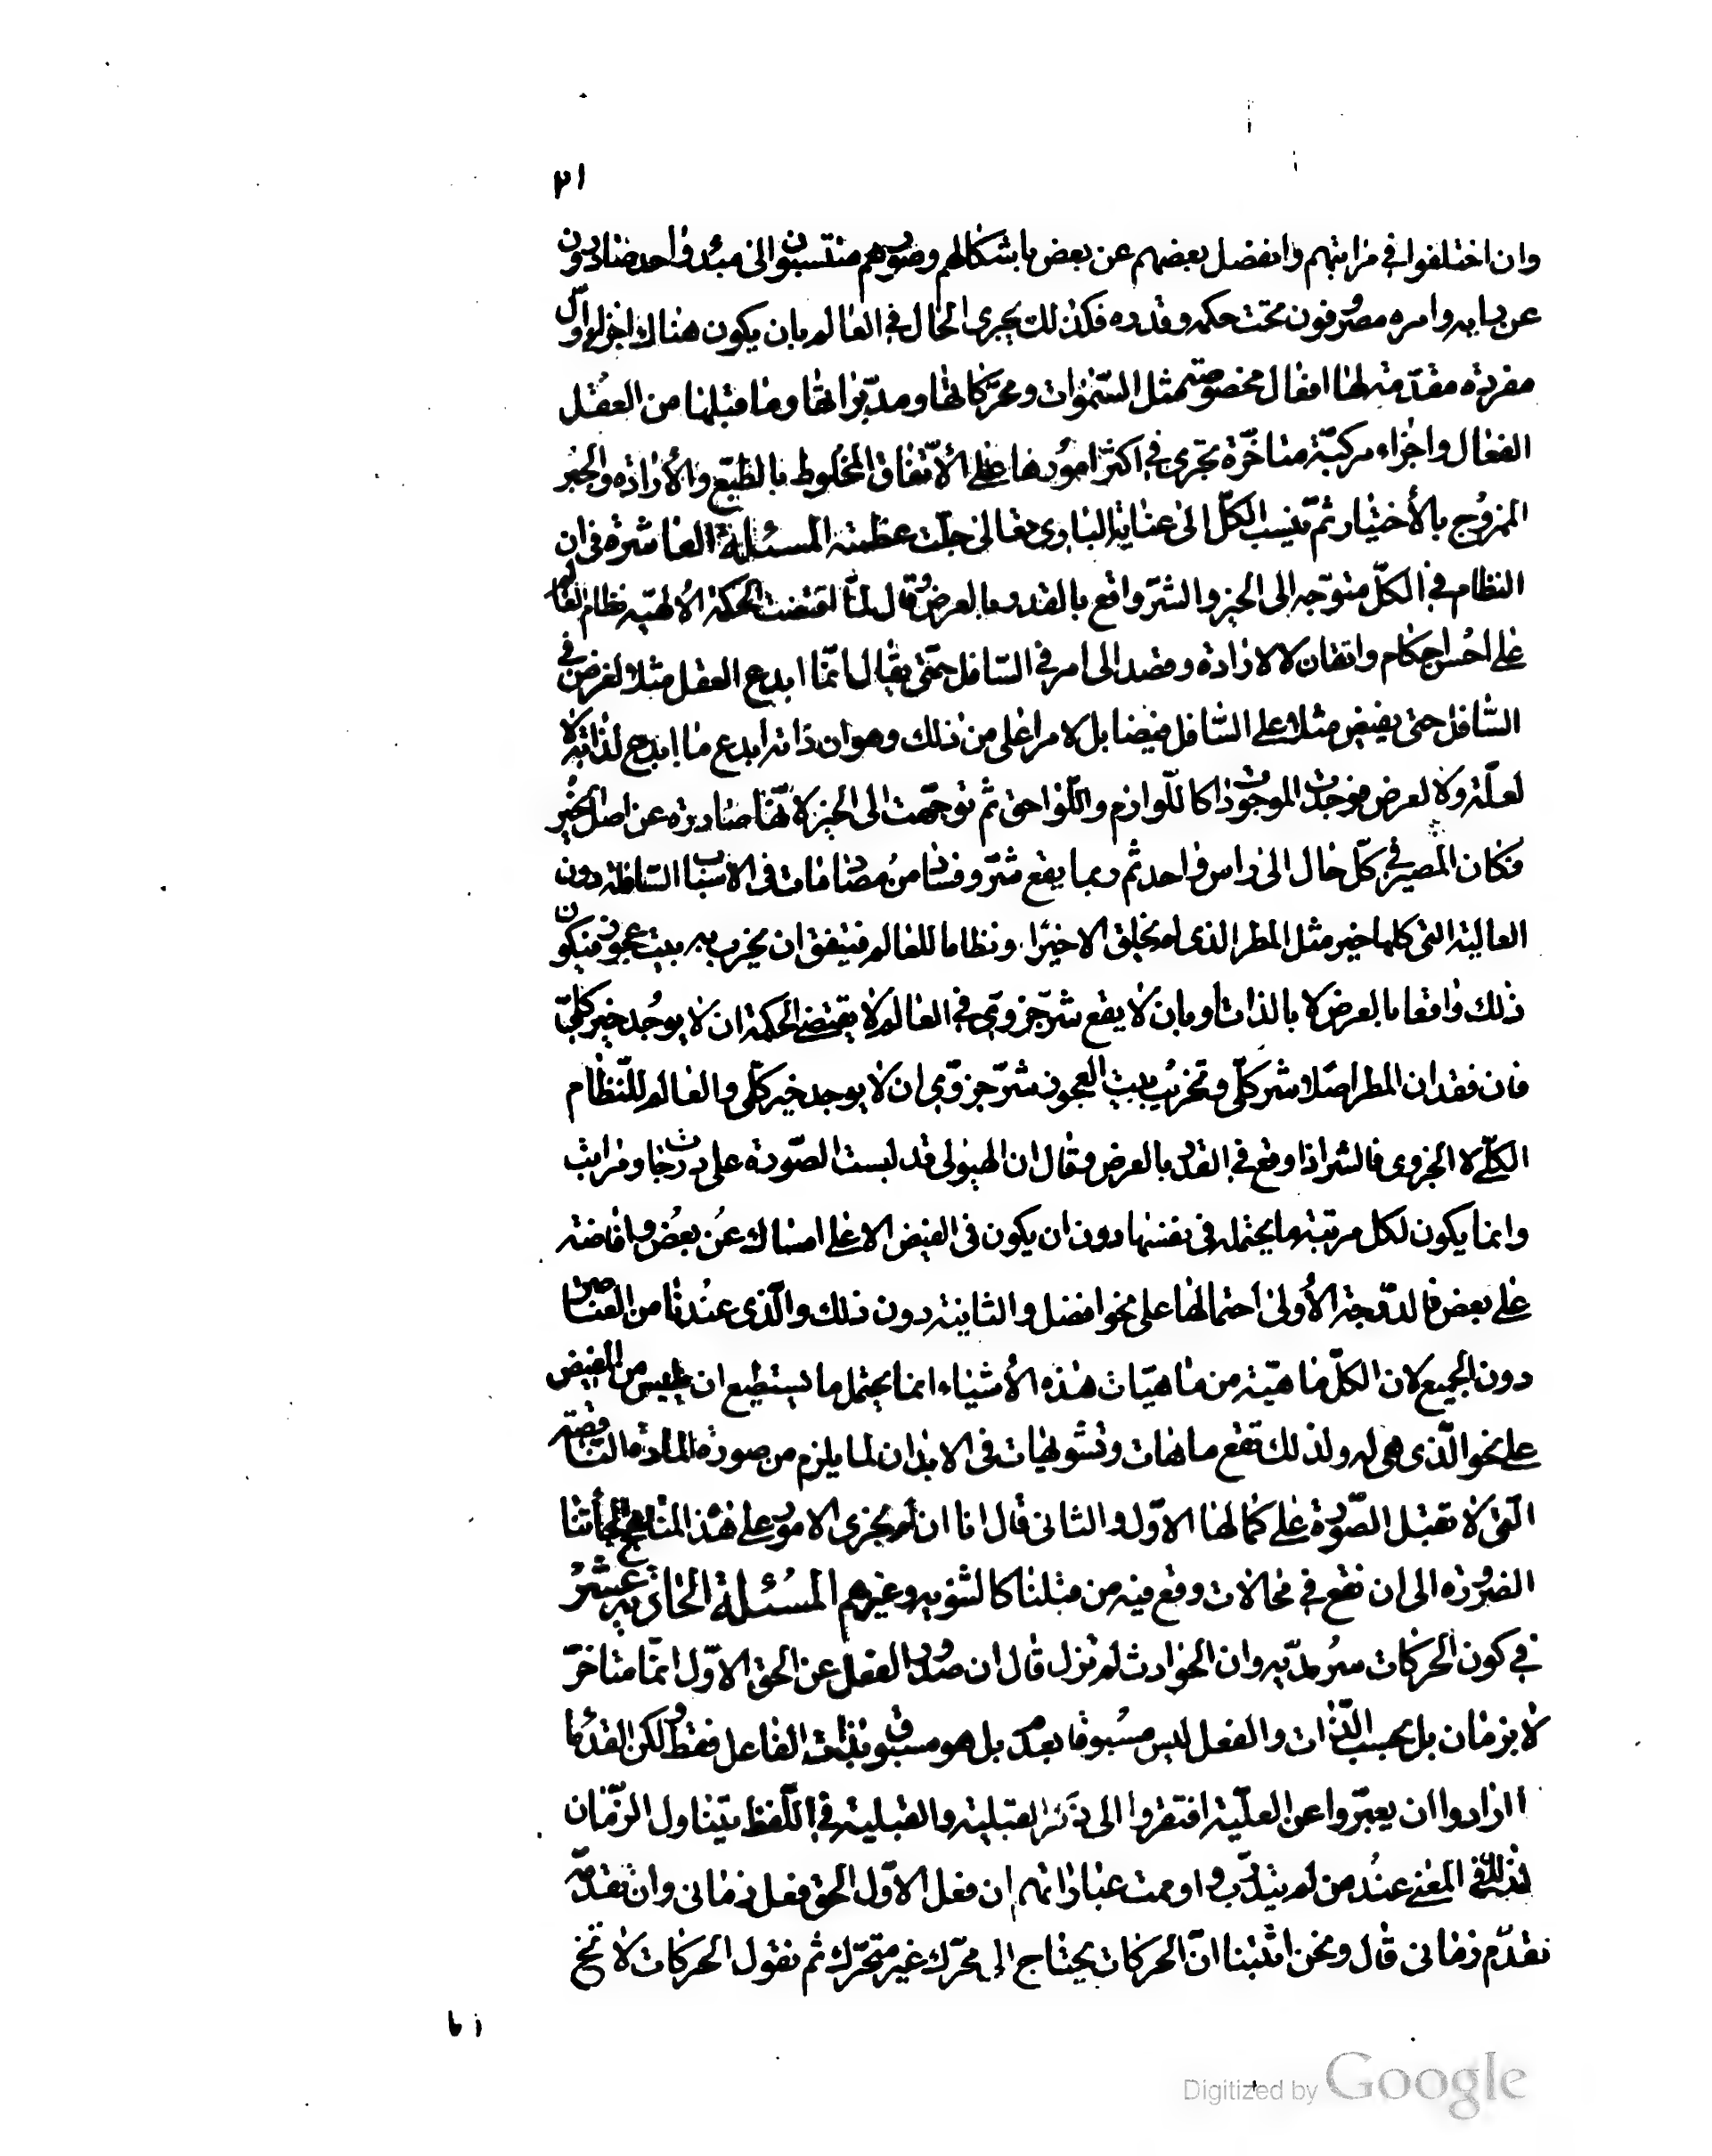 ٢١
وان اختلفوا في مراتبهم وانفصل بعضهم عن بعض باشكالهم وصورهم منتسبون الى مبدء واحد صادرون
عن رايه وامره مصرّفون تحت حكمه وقدره فكذلك يجرى الحال في العالم بان يكون هناك اجزاء اول
مفردة مقدّمة لها افعال مخصوصة مثل السّموات ومحرّكاتها ومدبّراتها وما قبلها من العقل
الفعال واجزاء مركبّة متاخّرة تجرى في اكثر امورها على الأتّفاق المخلوط بالطّبع والأرادة والجبر
الممزوج بالأختيار ثمّ ينسب الكلّ الى عناية البارى تعالى جلّت عظمته المسئلة العاشرة في ان
النظام في الكلّ متوّجه الى الخير والشرّ واقع بالقدر بالعرض وقال لمّا اقتضت الحكمة الألهيّة نظام العالم
على احسن احكام واتقان لا لارادة وقصد الى امر في السّافل حتّى يقال انّما ابدع العقل مثلا لغرض في
السّافل حتى يفيض مثلا على السّافل فيضا بل لامر اعلى من ذلك وهو ان ذاته ابدع ما ابدع لذاته لا
لعلّة ولا لغرض فوجدت الموجودات كاللّوازم واللّواحق ثم توجّهت الى الخير لأنّها صادرة عن اصل الخير
وكان المصير في كلّ حال الى راس واحد ثم ربما يقع شرّ وفساد من مصادفات في الاسباب السّافلة دون
العالية التى كلها خير مثل المطر الذى لم يخلق الا خيرا ونظاما للعالم فيتفق ان يخرب به بيت عجوز فيكون
ذلك واقعا بالعرض لا بالذات وبان لا يقع شرّ جزوىّ في العالم لا يقتضى الحكمة ان لا يوجد خير كلّى
فان فقدان المطر اصلا شر كلّى وتخريب بيت العجوز شرّ جزوّى ان لا يوجد خير كلّى والعالم للنّظام
الكلّى لا الجزوى فالشر اذا وقع في القدر بالعرض وقال ان الهيولى قد لبست الصّورة على درجات ومراتب
وانما يكون لكل مرتبة ما يحتمله في نفسها دون ان يكون في الفيض الاعلى امساك عن بعض وافاضة
على بعض فالدّرجة الأولى احتمالها على نحو افضل والثانية دون ذلك والّذى عندنا من العناصر
دون الجميع لان الكلّ ماهيّة من ماهيّات هذه الأشياء انما يحتمل ما يستطيع ان يلبس من الفيض
على نحو الّذى هى له ولذلك تقع عاهات وتشويهات في الابدان لما يلزم من صورة المادة الناقصة
الّتى لا تقبل الصّورة على كمالها الاوّل والثانى قال انا ان لم نجرى الامور على هذا المنهاج الجأتنا
الضرورة الى ان نقع في محالات وقع فيه من قبلنا كالثنويه وغيرهم المسئلة الحادية عشر
في كون الحركات سرمديّه وان الحوادث لم تزل قال ان صدور الفعل عن الحق الاوّل انّما متاخّر
لا بزمان بل بحسب الذّات والفعل ليس مسبوقا بعدم بل هو مسبوق بذات الفاعل فقط ولكن القدما
ارادوا ان يعبّروا عن العلّية افتقروا الى ذكر القبلية والقبلية في اللّفظ يتناول الزّمان
وكذلك في المعنى عند من لم يتدرّب واوهمت عباراتهم ان فعل الاوّل الحق فعل زمانى وان تقدّمه
تقدّم زمانى قال ونحن اثبتنا انّ الحركات يحتاج الى محرّك غير متحرّك ثم نقول الحركات لا تخ